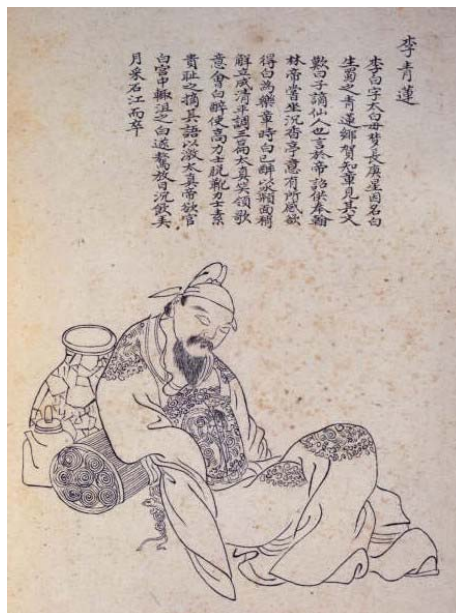 李青蓮
李白字太白母夢長庚星因名白
生蜀之青蓮鄉賀知章見其文
歎曰子謫仙人也言於帝詔供奉翰
林帝嘗坐沉香亭意有所感欲
得白為樂章時白已醉以水頮面稍
解立成清平調三篇太真笑領歌
意會白醉使高力士脫靴力士素
貴恥之摘其語以激太真帝欲官
白宮中輒沮之白遂驁放日沉飲
月采石江而卒